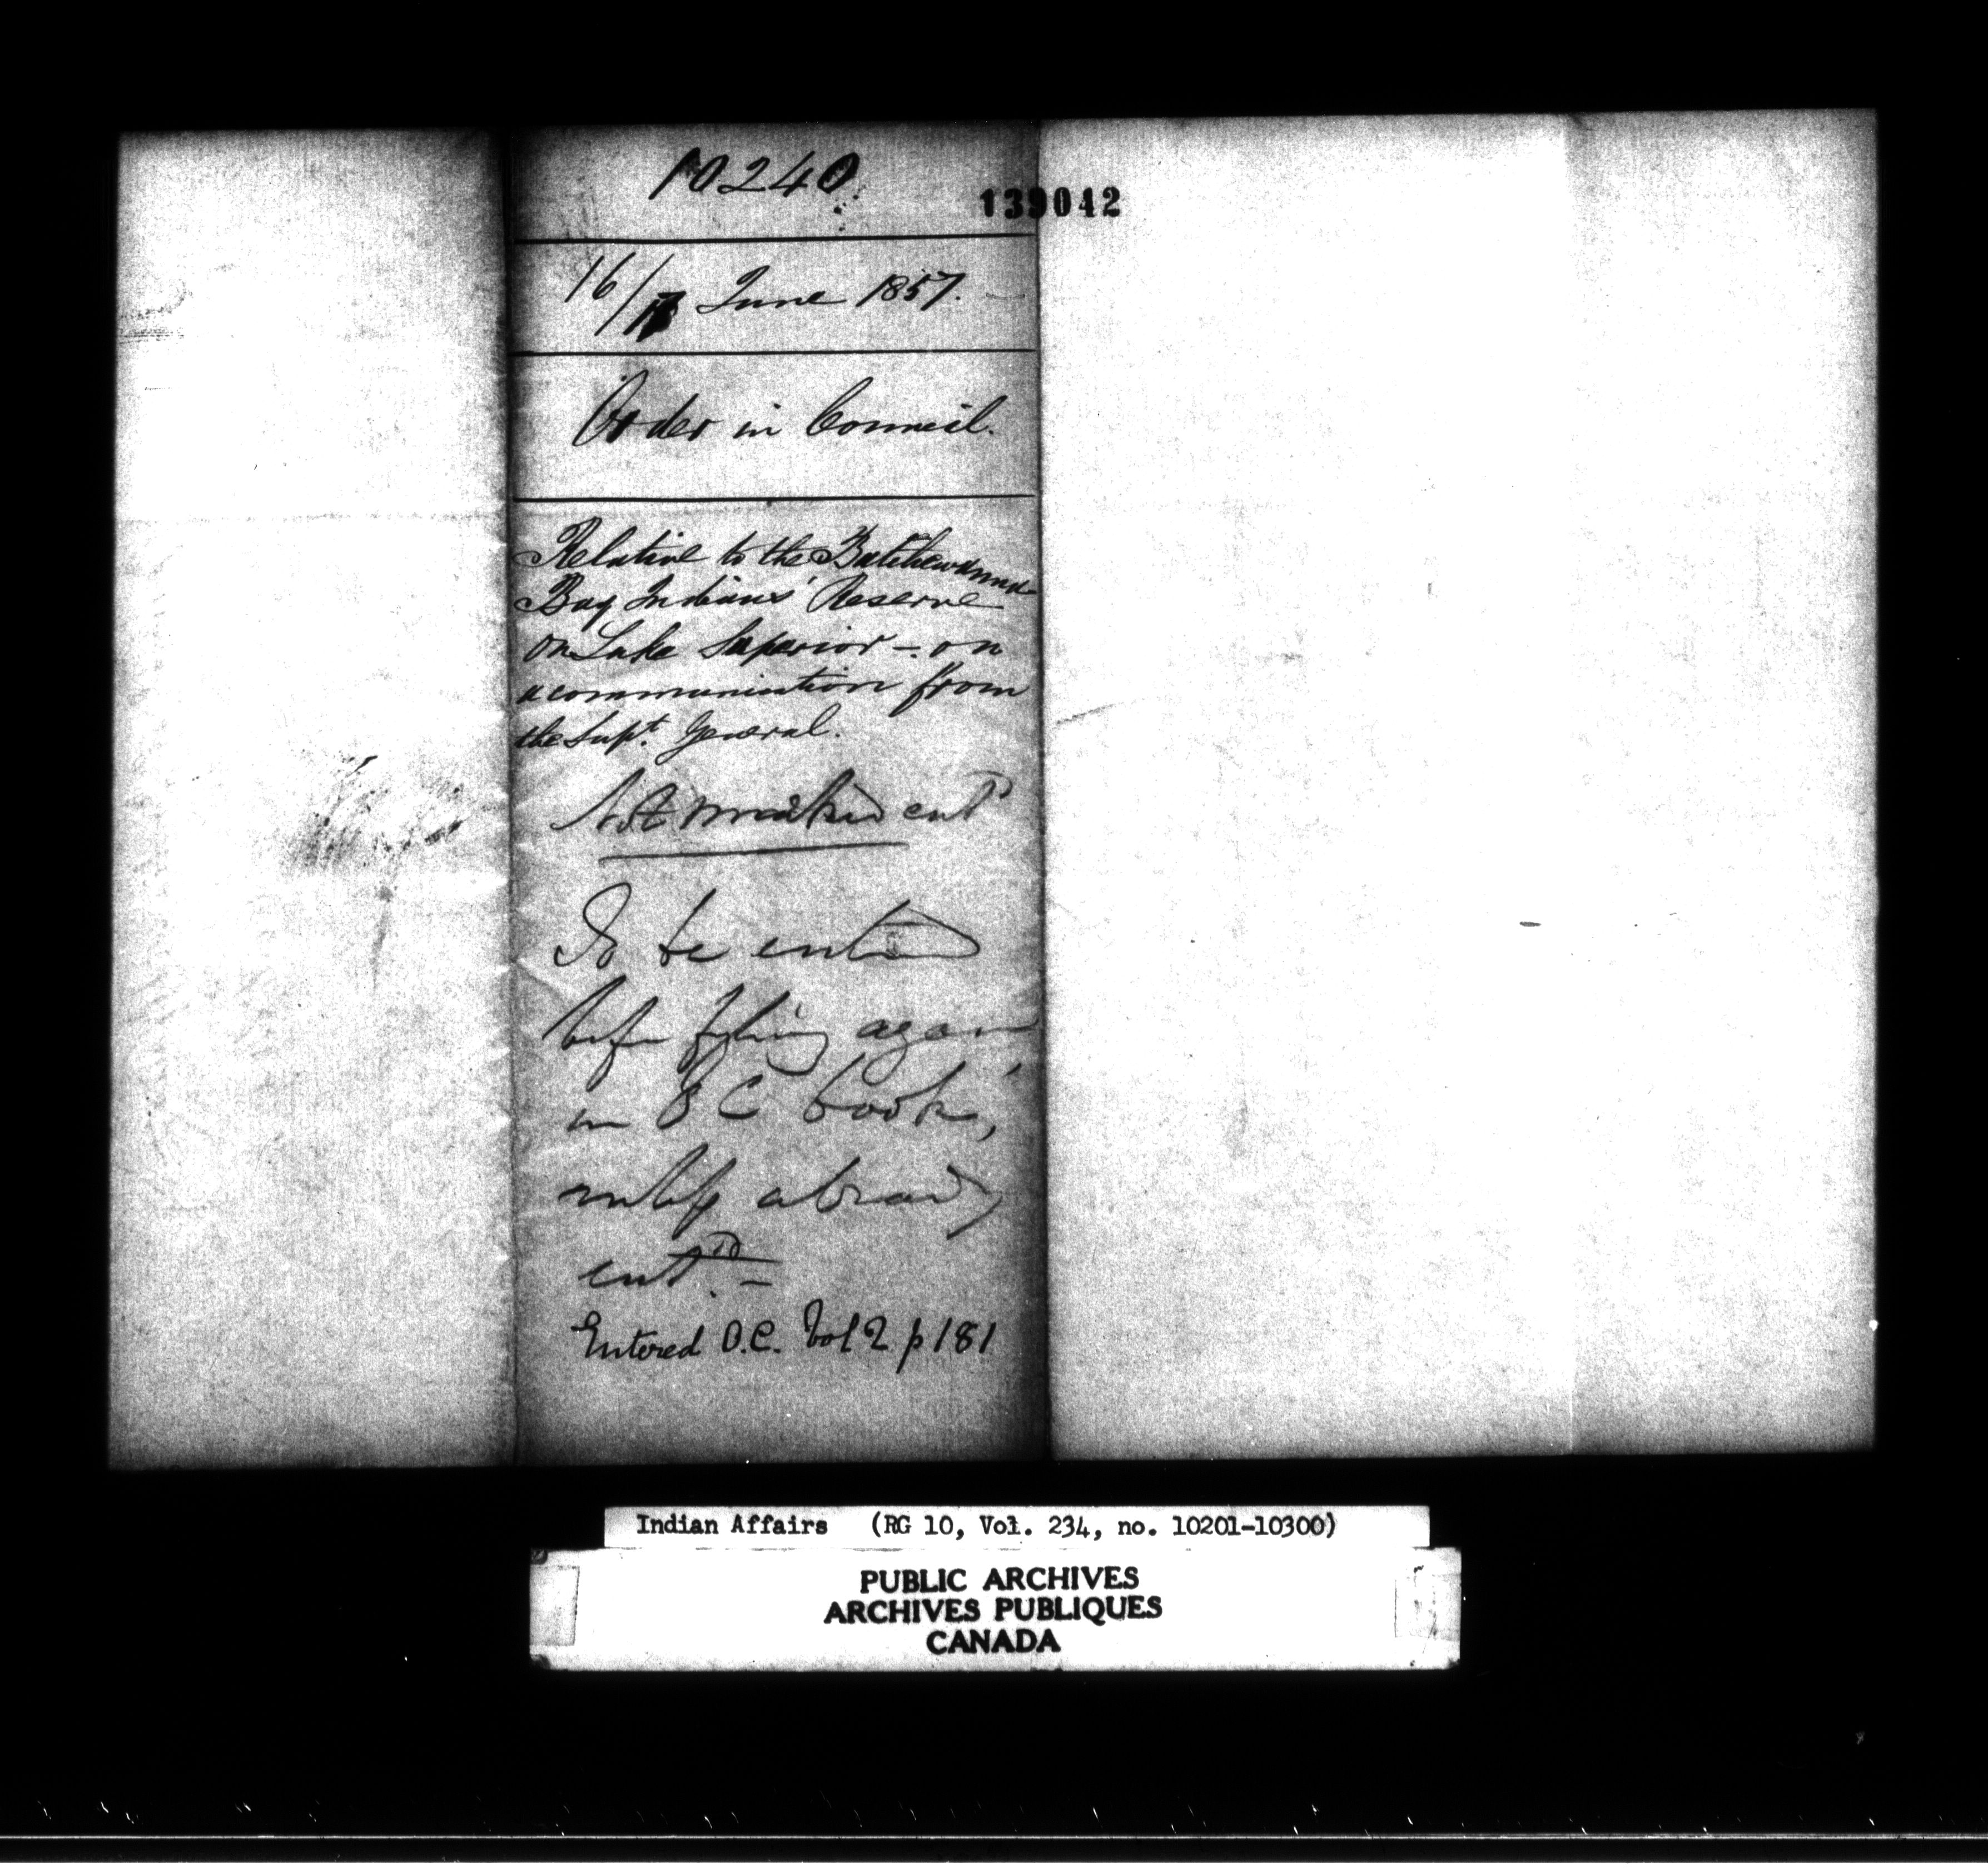 10240
139042
16/17 June 1857.
Order in Council.
Relative to the Batchewanna
Bay Indians' Reserve
on Lake Superior - on
a communication from
the Supt. General.
Not marked entd
To be entered
before fyling again
in O C book,
unless already
entd. -
Entered O.C. Vol 2 p 181
Indian Affairs (RG 10, Vol. 234, no. 10201-10300)
PUBLIC ARCHIVES
ARCHIVES PUBLIQUES
CANADA